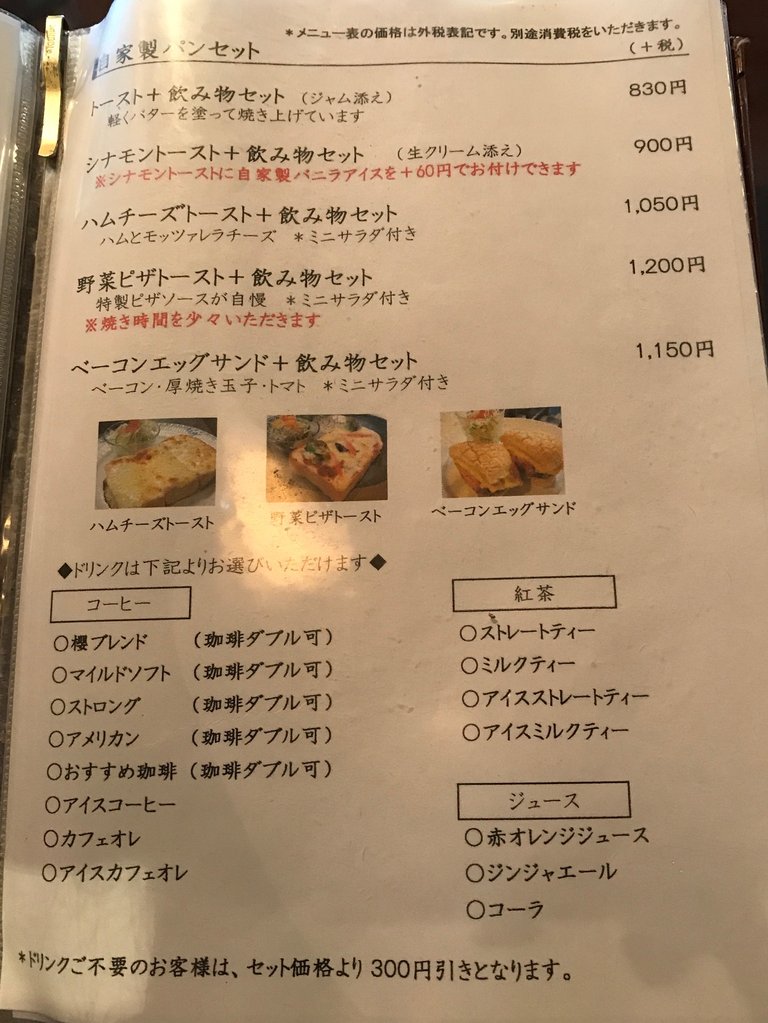 ＊メニュー表の価格は外税表記です。別途消費税をいただきます。
自家製パンセット (＋税)
トースト＋飲み物セット (ジャム添え) 830円
軽くバターを塗って焼き上げています
シナモントースト＋飲み物セット (生クリーム添え) 900円
※シナモントーストに自家製バニラアイスを＋60円でお付けできます
ハムチーズトースト＋飲み物セット 1,050円
ハムとモッツァレラチーズ ＊ミニサラダ付き
野菜ピザトースト＋飲み物セット 1,200円
特製ピザソースが自慢 ＊ミニサラダ付き
※焼き時間を少々いただきます
ベーコンエッグサンド＋飲み物セット 1,150円
ベーコン・厚焼き玉子・トマト ＊ミニサラダ付き
ハムチーズトースト 野菜ピザトースト ベーコンエッグサンド
◆ドリンクは下記よりお選びいただけます◆
コーヒー
○櫻ブレンド (珈琲ダブル可)
○マイルドソフト (珈琲ダブル可)
○ストロング (珈琲ダブル可)
○アメリカン (珈琲ダブル可)
○おすすめ珈琲 (珈琲ダブル可)
○アイスコーヒー
○カフェオレ
○アイスカフェオレ
紅茶
○ストレートティー
○ミルクティー
○アイスストレートティー
○アイスミルクティー
ジュース
○赤オレンジジュース
○ジンジャエール
○コーラ
＊ドリンクご不要のお客様は、セット価格より300円引きとなります。